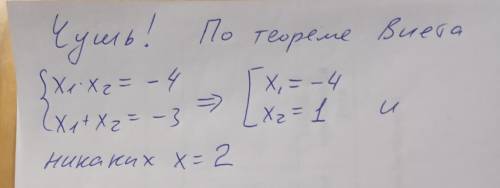 Чушь! По теореме Виета
{ x₁·x₂ = -4 ⇒ [ x₁ = -4
{ x₁+x₂ = -3 ⇒ [ x₂ = 1 и
никаких x = 2